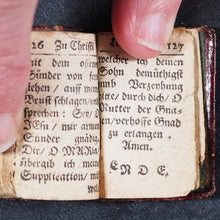 26 Zu Christi
mit dem offen
Sünder von fer
stehen / auff mein
Brust schlagen / und
sprechen: HErr
JEsu / mir armen
Sünder gnädig
Dir / O MARIA
übergib ich mein
Supplication / mit
wel
127
welcher ich deinen
Sohn demüthigst
umb Verzeyhung
bitte / durch dich / O
Mutter der Gna-
den / verhoffe Gnad
zu erlangen.
Amen.
ENDE.